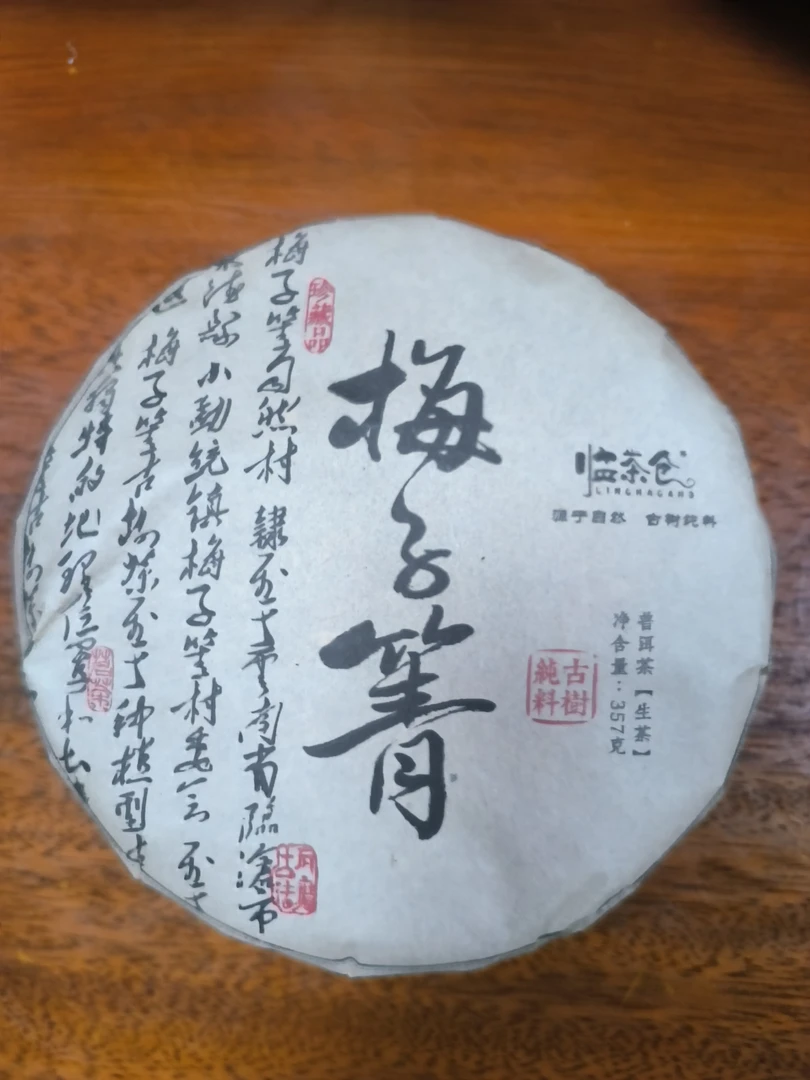 梅子箐
临茶仓
LINCHACANG
源于自然 古树纯料
普洱茶【生茶】
净含量：357克
古樹
純料
珍藏品
梅子箐自然村 隸属于云南省臨滄市
小勐统镇梅子箐村委会 属于
梅子箐古树茶属于种植型古
独特的地理位置和
古树茶